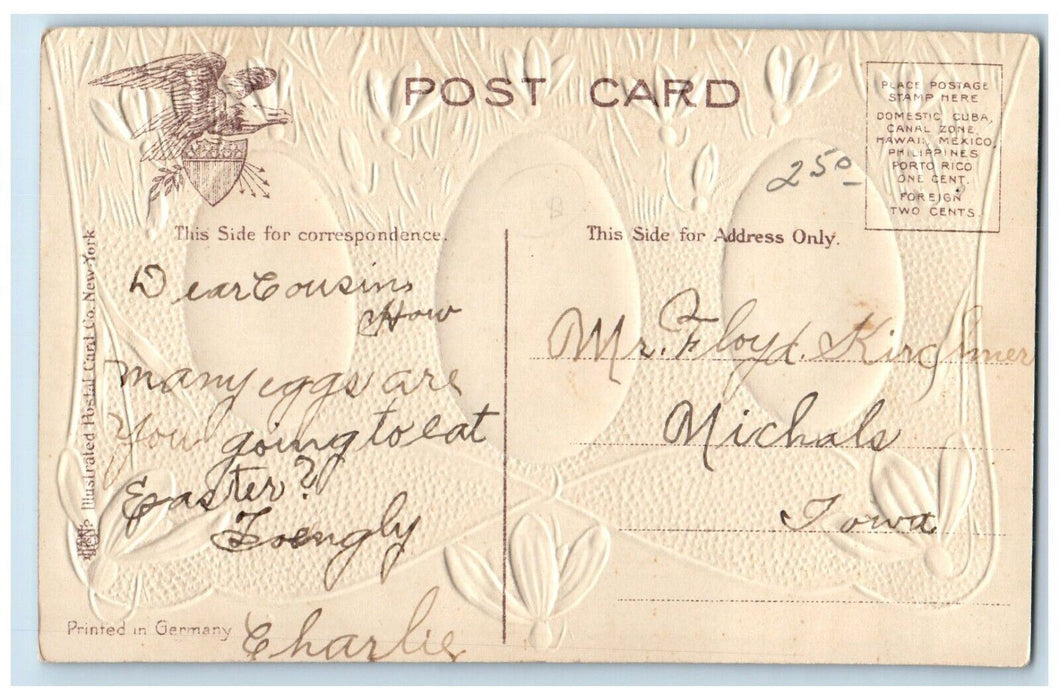 POST CARD
PLACE POSTAGE
STAMP HERE
DOMESTIC CUBA,
CANAL ZONE,
HAWAII, MEXICO,
PHILIPPINES
PORTO RICO
ONE CENT.
FOREIGN
TWO CENTS.
250
This Side for correspondence.
This Side for Address Only.
Dear Cousin,
How
many eggs are
You going to eat
Easter?
Charlie
Mr. Floyd.
Michals
Iowa
Illustrated Postal Card Co. New York
Printed in Germany